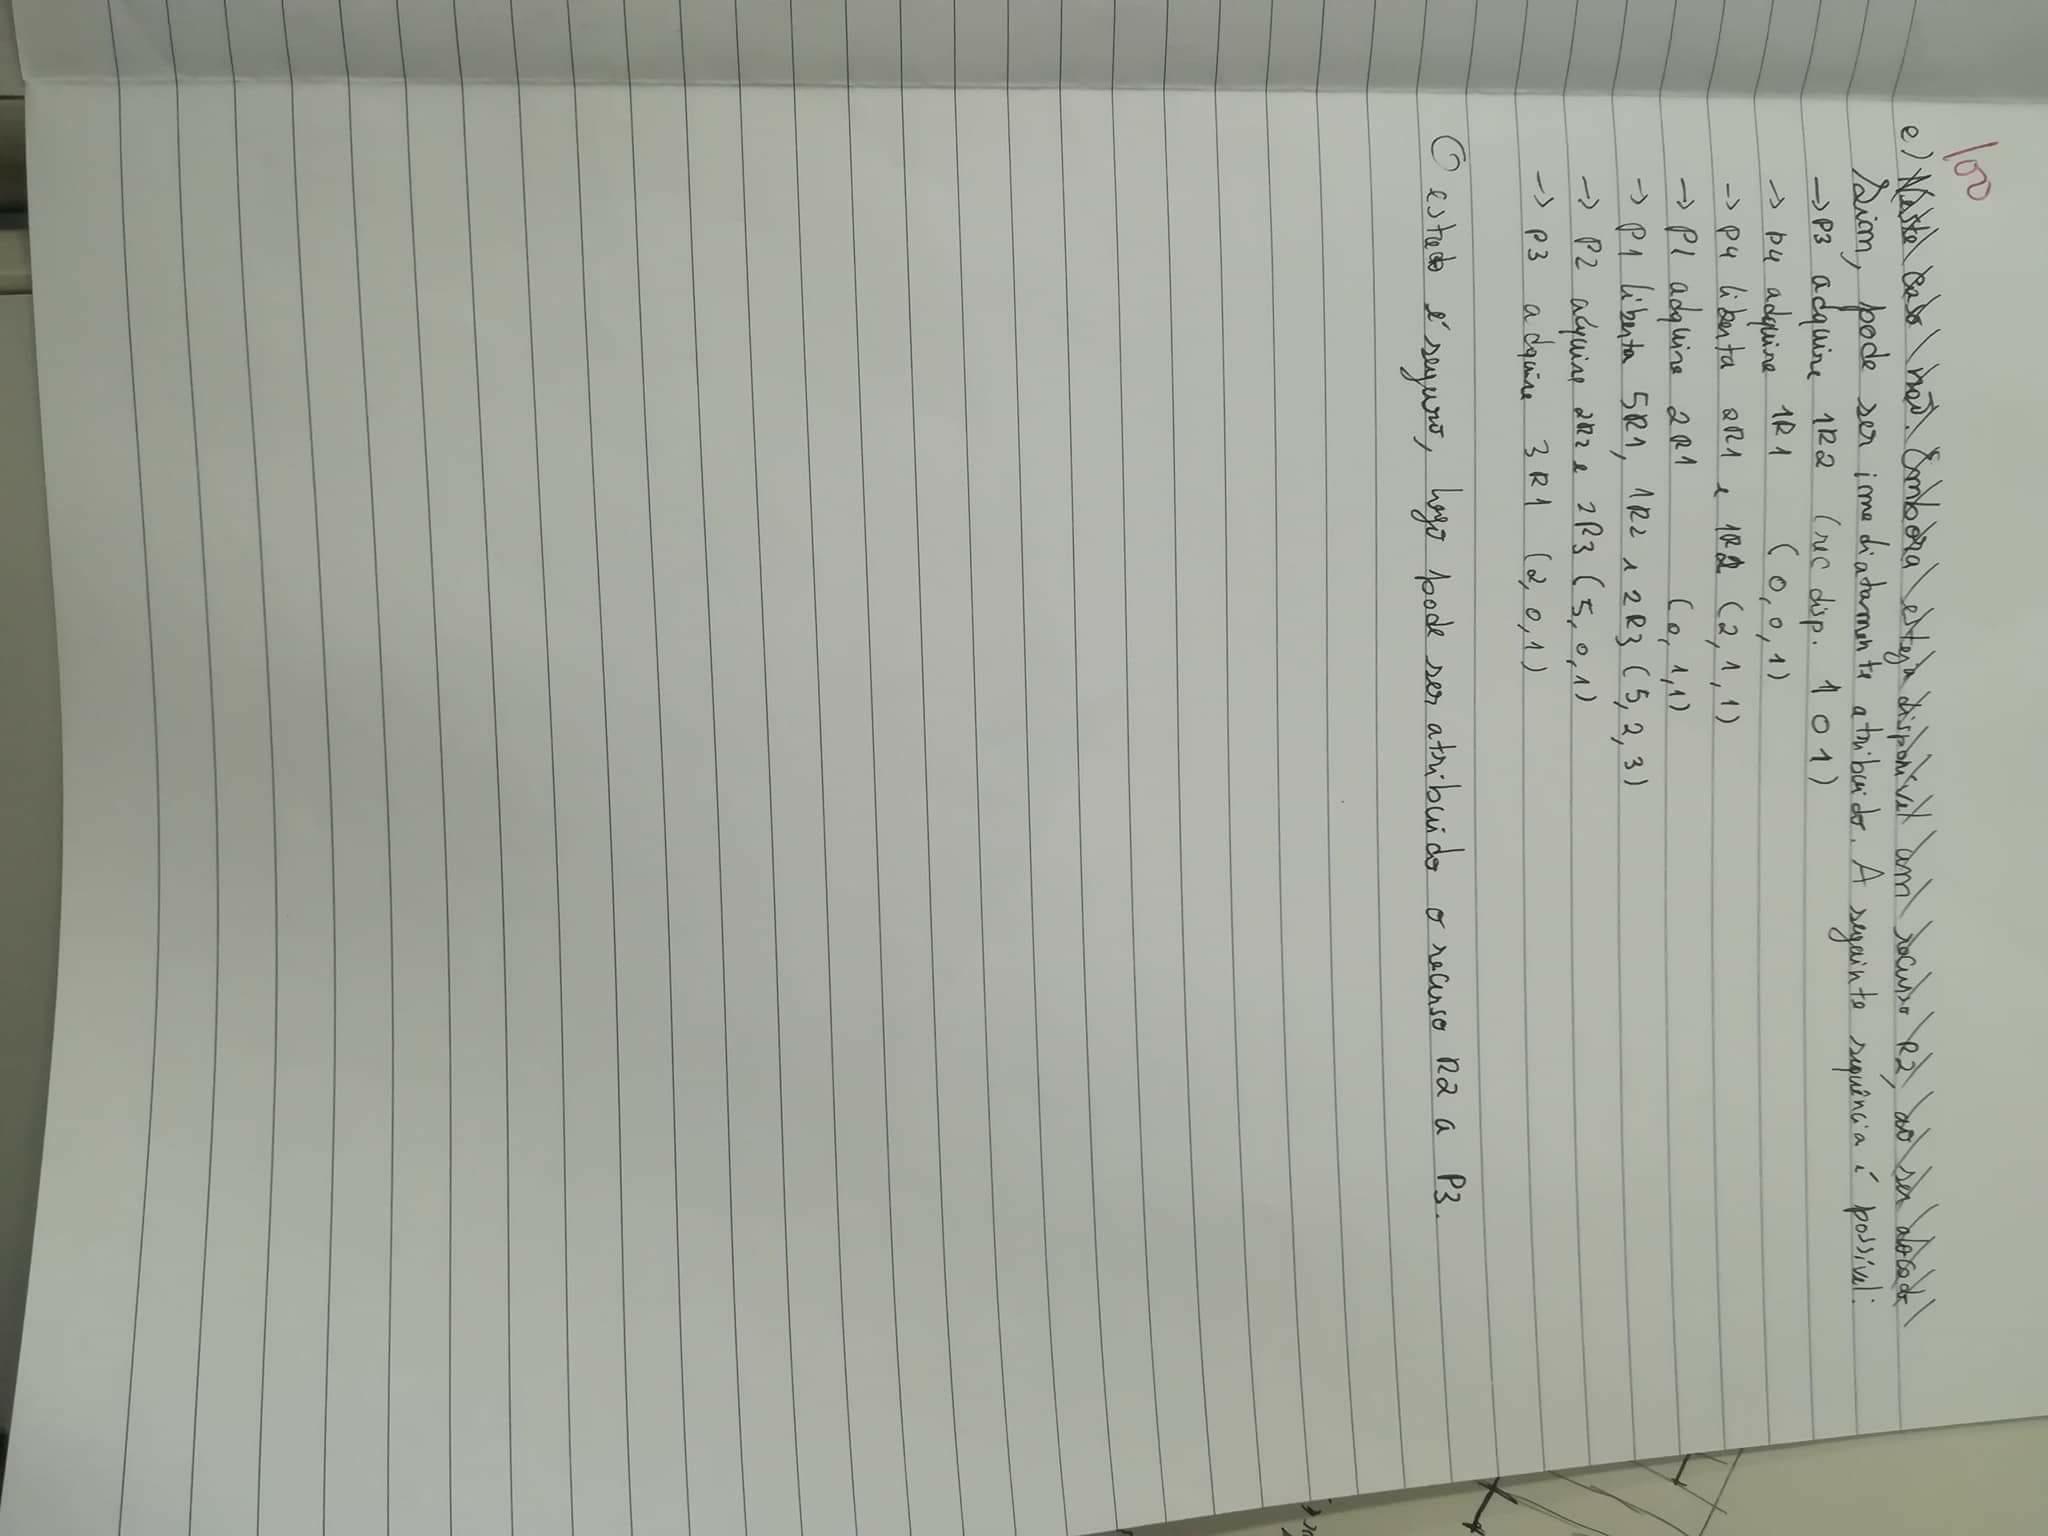 100
e) Neste caso não. Embora esteja disponível um recurso R2, ao ser alocado
Sim, pode ser imediatamente atribuido. A seguinte sequência é possível:
-> P3 adquire 1R2 (rec disp. 1 0 1)
-> P4 adquire 1R1 (0,0,1)
-> P4 liberta 2R1 e 1R2 (2,1,1)
-> P1 adquire 2R1 (0,1,1)
-> P1 liberta 5R1, 1R2 e 2R3 (5,2,3)
-> P2 adquire 2R2 e 2R3 (5,0,1)
-> P3 adquire 3R1 (2,0,1)
O estado é seguro, logo pode ser atribuido o recurso R2 a P3.